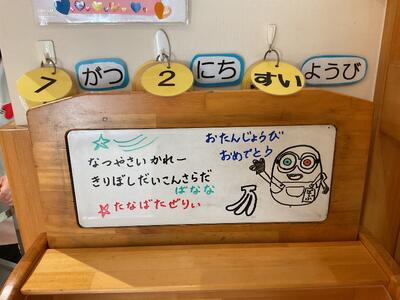 7 がつ 2 にち すい ようび
なつやさいかれー
きりぼしだいこんさらだ
ばなな
たなばたぜりぃ
おたんじょうび
おめでとう